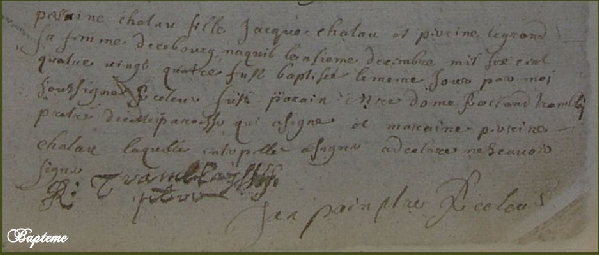 perrine chalau fille Jacque chalau et perine legrand
sa femme de ce bourg naquit le onsieme decembre mil six cent
quatre vingt quatre fust baptisée le meme jour par moi
soussigné Recteur fust parain dom Rolland trambley
pretre de cette paroisse qui a signé et maraine perrine
chalau laquelle interpellee a signer a declare ne scavoir
signer
R: Tramblay
ptre
Jan Recteur
Bapteme